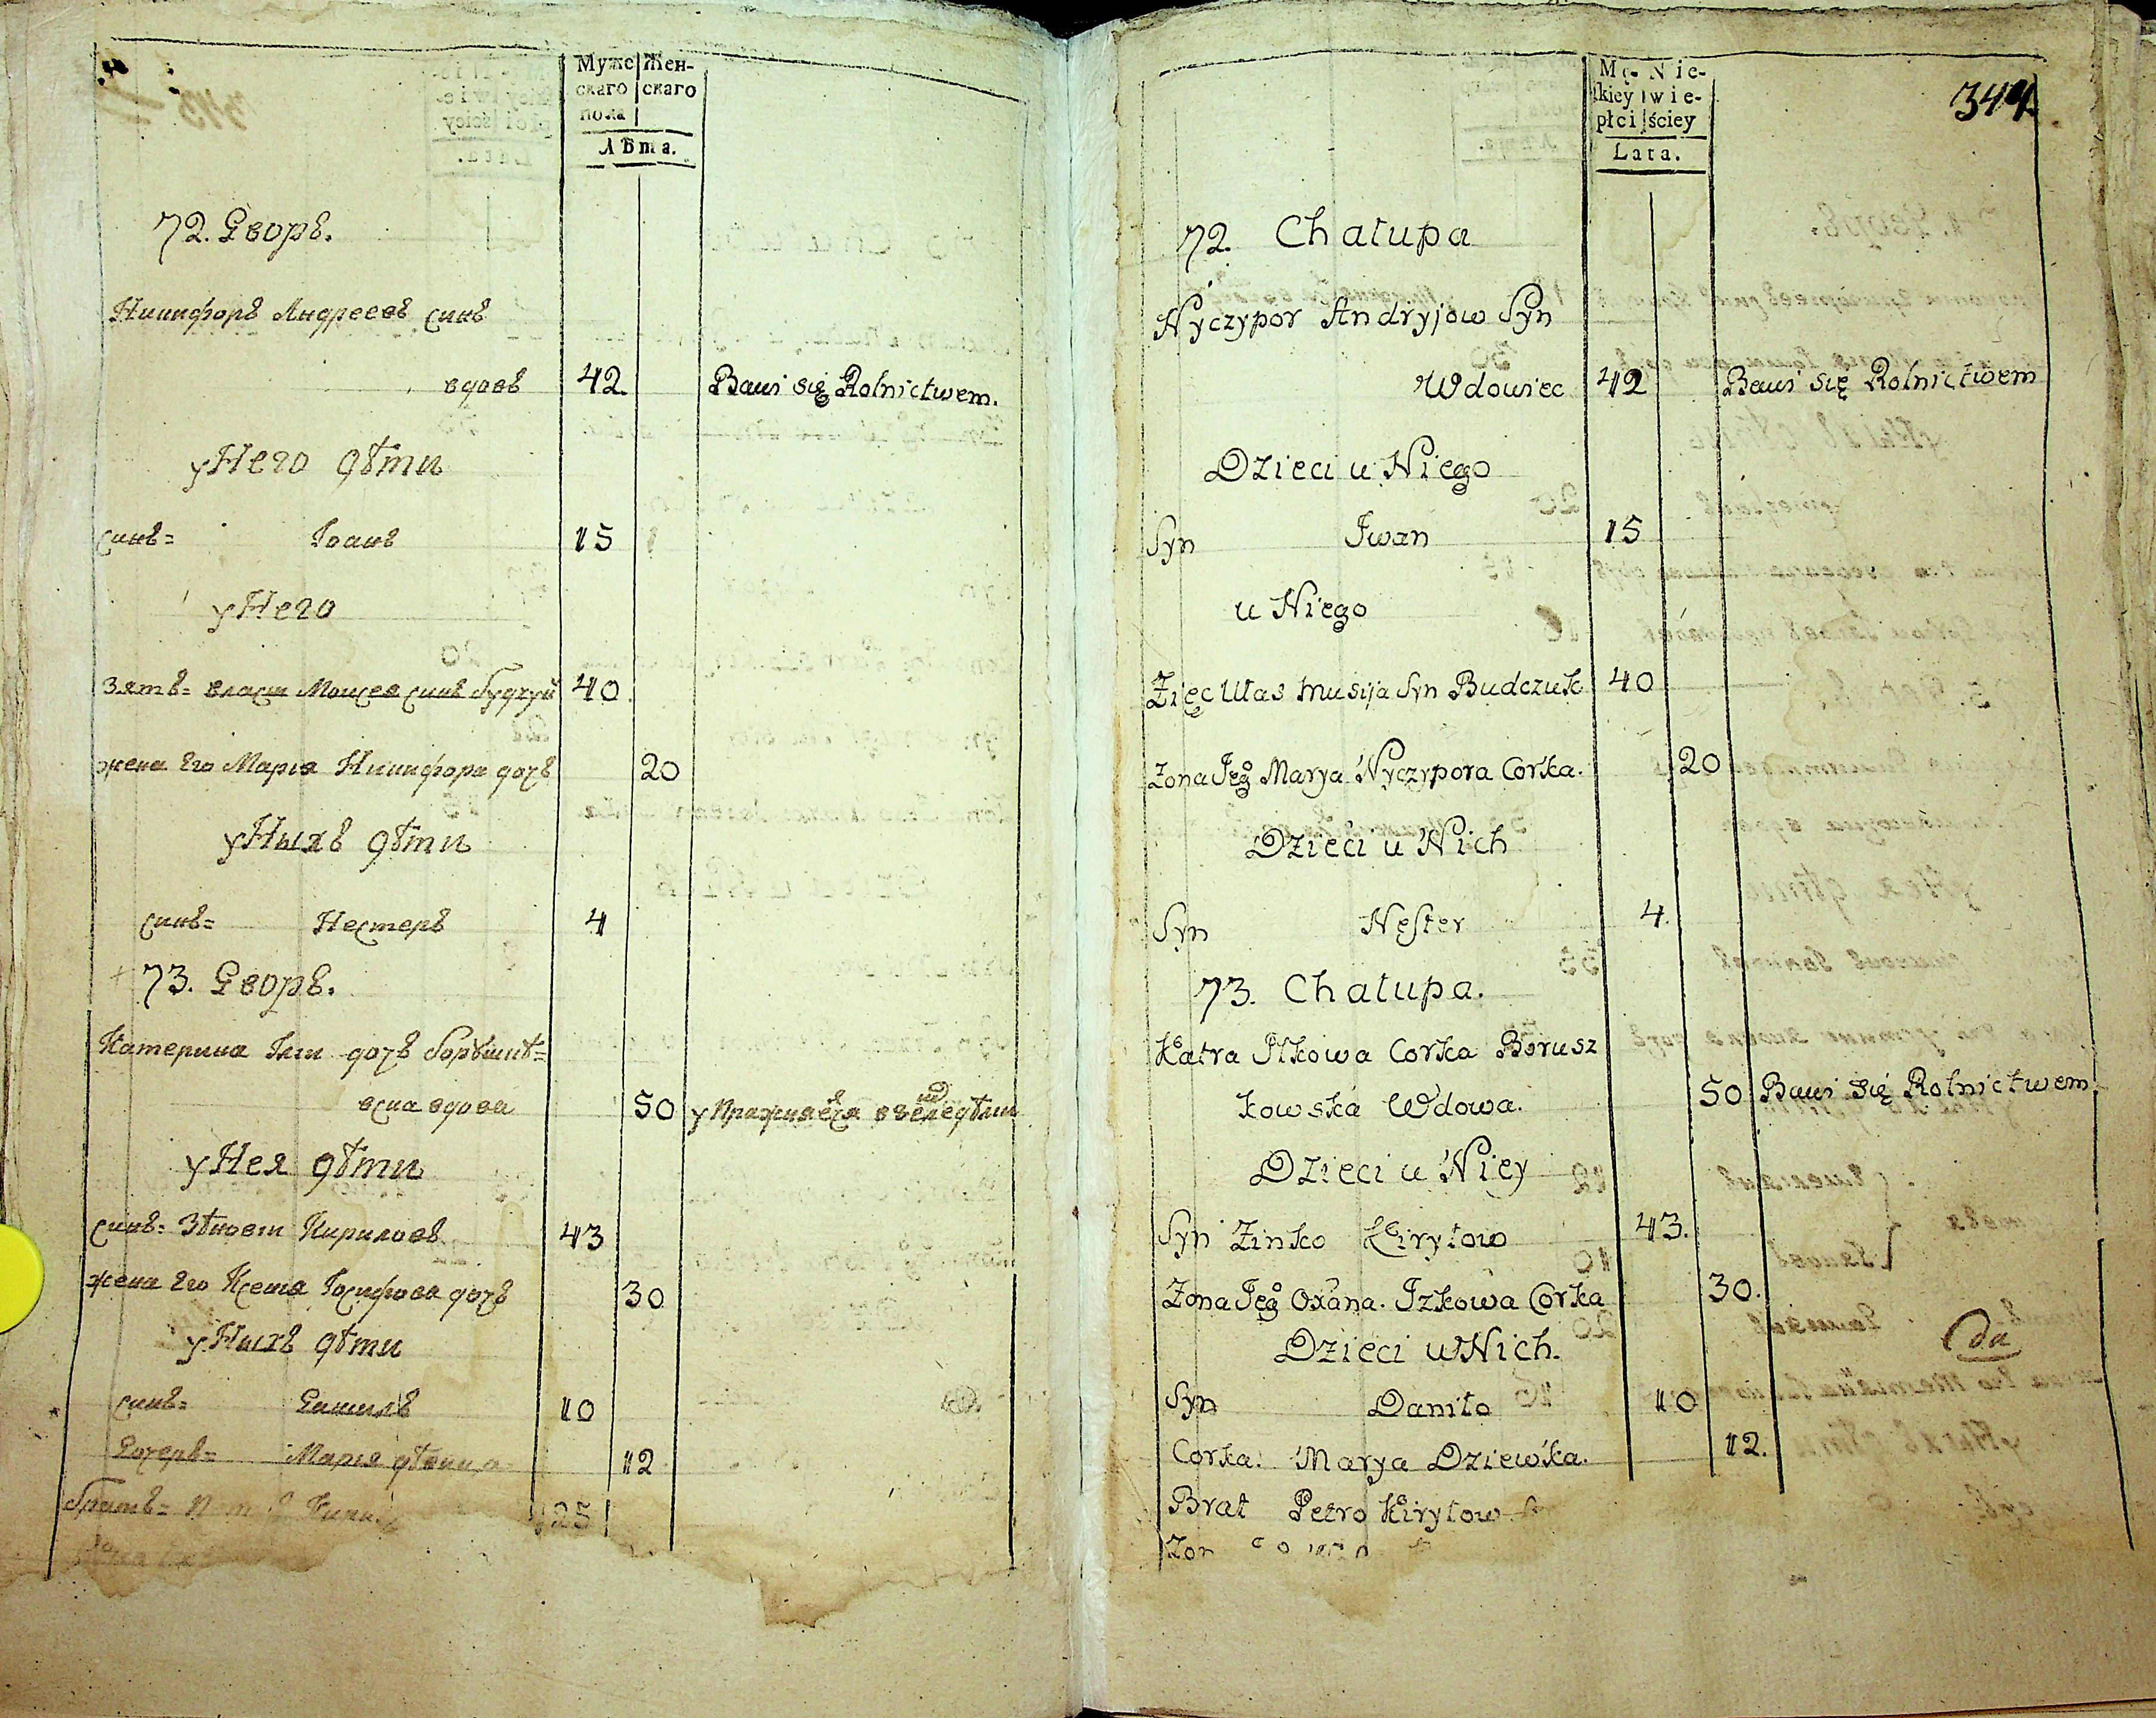 Муже Жен-
скаго скаго
пола
Лѣта.
72. Дворъ.
Никифоръ Андреевъ синъ
вдовъ 42. Bawi się Rolnictwem.
у Него дѣти
синъ= Іоанъ 15
у Него
Зятъ= власи Моисея синъ Будчуй 40.
жена Его Марія Никифора дочъ 20
у Ныхъ дѣти
синъ= Нестеръ 4
73. Дворъ.
Катерина дочъ
вска вдова 50 упражняется
у Нея дѣти
синъ= Зѣновій Кириловъ 43
жена Его Ксенія Іосифова дочъ 30
у Ныхъ дѣти
синъ= Данилъ 10
Дочеръ= Марія дѣвица 12
братъ= 25
Mę- Nie-
skiey wie-
płci ściey
Lata.
344.
72. Chałupa
Nyczypor Andryjow Syn
Wdowiec 42 Bawi się Rolnictwem
Dzieci u Niego
Syn Iwan 15
u Niego
Zięc Ułas Musija Syn Budczuk 40
Zona Jego Marya Nyczypora Corka. 20
Dzieci u Nich
Syn Nester 4.
73. Chałupa.
Katra Itkowa Corka Borusz
kowska Wdowa. 50 Bawi się Rolnictwem
Dzieci u Niey
Syn Zinko Kiryłow 43.
Zona Jego Oxana. Izkowa Corka 30.
Dzieci u Nich.
Syn Daniło 10
Corka. Marya Dziewka. 12.
Brat Petro Kiryłow
Zon